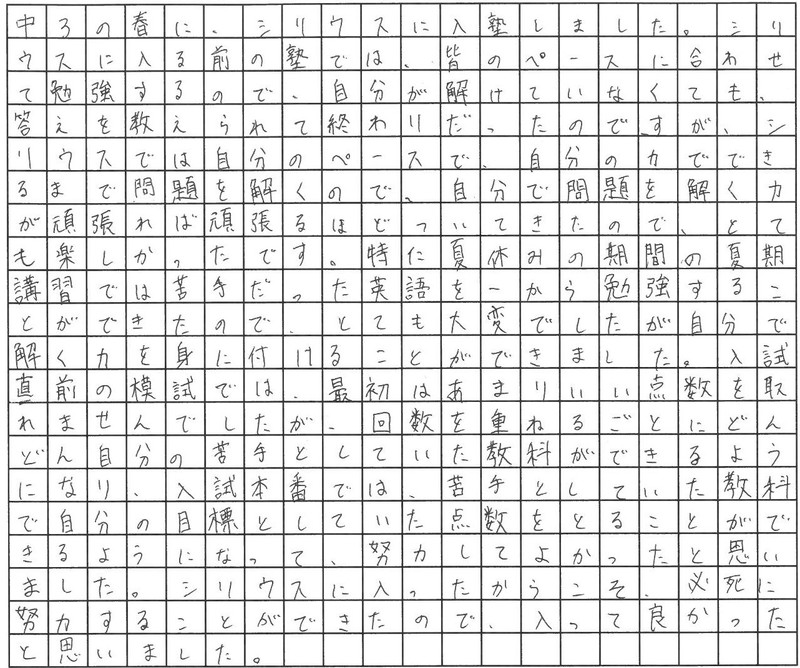 中3の春に、シリウスに入塾しました。シリ
ウスに入る前の塾では、皆のペースに合わせ
て勉強するので、自分が解けていなくても、
答えを教えられて終わりだったのですが、シ
リウスでは自分のペースで、自分の力ででき
るまで問題を解くので、自分で問題を解く力
が頑張れば頑張るほどついてきたので、とて
も楽しかったです。特に夏休みの期間の夏期
講習では苦手だった英語を一から勉強するこ
とができたので、とても大変でしたが自分で
解く力を身に付けることができました。入試
直前の模試では、最初はあまりいい点数を取
れませんでしたが、回数を重ねるごとにどん
どん自分の苦手としていた教科ができるよう
になり、入試本番では、苦手としていた教科
で自分の目標としていた点数をとることがで
きるようになって、努力してよかったと思い
ました。シリウスに入ったからこそ、必死に
努力することができたので、入って良かった
と思いました。